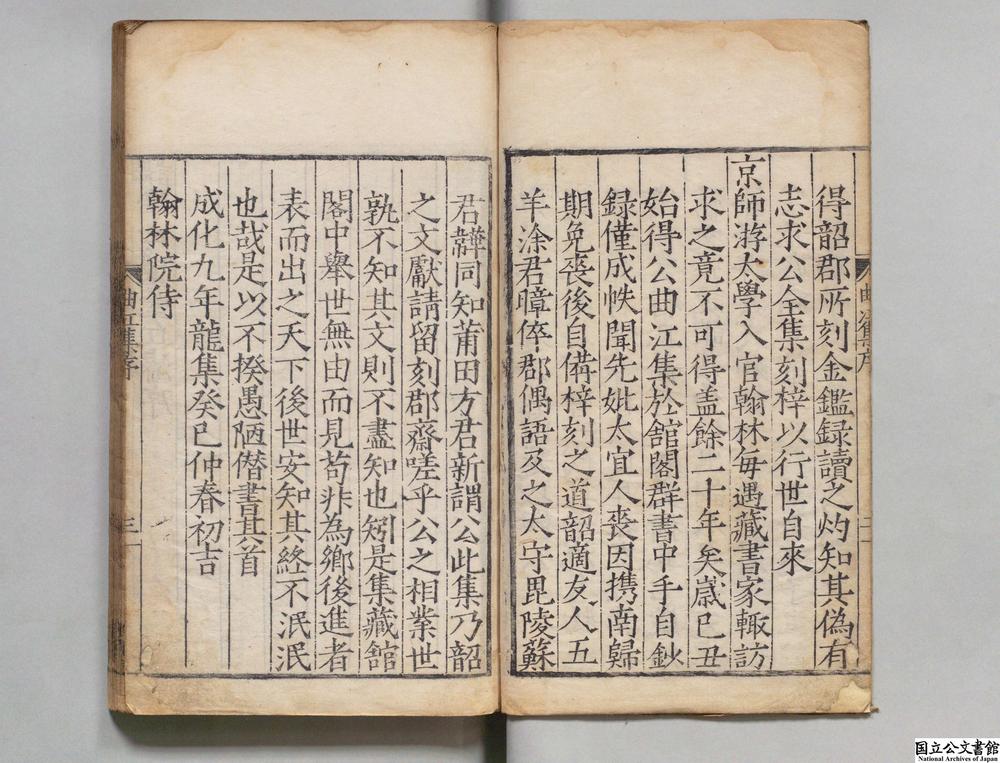 得韶郡所刻金鑑録讀之灼知其偽有
志求公全集刻梓以行世自來
京師游太學入官翰林每遇藏書家輙訪
求之竟不可得盖餘二十年矣歳己丑
始得公曲江集於舘閣群書中手自鈔
録僅成帙聞先妣太宜人喪因携南歸
期免喪後自備梓刻之道韶適友人五
羊涂君暲倅郡偶語及之太守毘陵蘇
君韡同知莆田方君新謂公此集乃韶
之文獻請留刻郡齋嗟乎公之相業世
孰不知其文則不盡知也矧是集藏舘
閣中舉世無由而見苟非為鄉後進者
表而出之天下後世安知其終不泯泯
也哉是以不揆愚陋僣書其首
成化九年龍集癸巳仲春初吉
翰林院侍
曲江集序
二
曲江集序
三
国立公文書館
National Archives of Japan